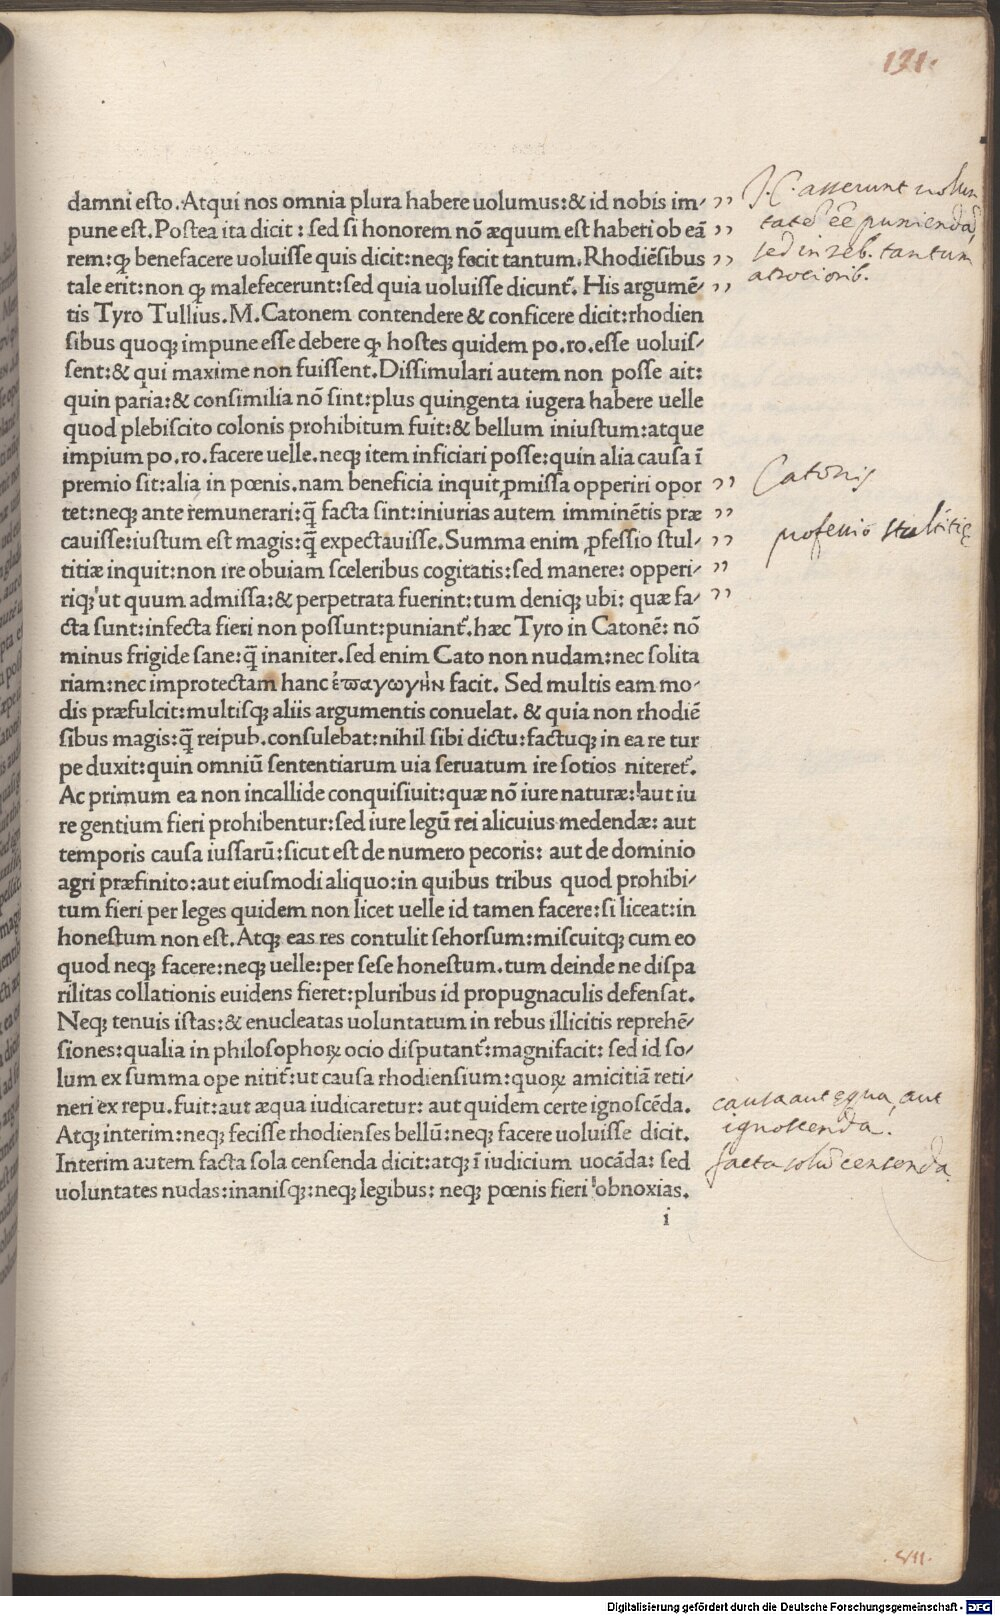 131.
damni esto. Atqui nos omnia plura habere uolumus: & id nobis im-
pune est. Postea ita dicit: sed si honorem nō æquum est haberi ob eā
rem: ꝙ benefacere uoluisse quis dicit: neqꝫ fecit tantum. Rhodiēsibus
tale erit: non ꝙ malefecerunt: sed quia uoluisse dicunt᷑. His argumē-
tis Tyro Tullius. M. Catonem contendere & conficere dicit: rhodien
sibus quoqꝫ impune esse debere ꝙ hostes quidem po. ro. esse uoluis-
sent: & qui maxime non fuissent. Dissimulari autem non posse ait:
quin paria: & consimilia nō sint: plus quingenta iugera habere uelle
quod plebiscito colonis prohibitum fuit: & bellum iniustum: atque
impium po. ro. facere uelle. neqꝫ item inficiari posse: quin alia causa ī
premio sit: alia in pœnis. nam beneficia inquit ꝓmissa opperiri opor
tet: neqꝫ ante remunerari: q̄ facta sint: iniurias autem imminētis præ
cauisse: iustum est magis: q̄ expectauisse. Summa enim ꝓfessio stul-
titiæ inquit: non ire obuiam sceleribus cogitatis: sed manere: opperi-
riqꝫ ut quum admissa: & perpetrata fuerint: tum deniqꝫ ubi: quæ fa-
cta sunt: infecta fieri non possunt: puniant᷑. hæc Tyro in Catonē: nō
minus frigide sane: q̄ inaniter. sed enim Cato non nudam: nec solita
riam: nec improtectam hanc ἐπαγωγὴν facit. Sed multis eam mo-
dis præfulcit: multisqꝫ aliis argumentis conuelat. & quia non rhodiē
sibus magis: q̄ reipub. consulebat: nihil sibi dictu: factuqꝫ in ea re tur
pe duxit: quin omniū sententiarum uia seruatum ire sotios niteret᷑.
Ac primum ea non incallide conquisiuit: quæ nō iure naturæ: aut iu
re gentium fieri prohibentur: sed iure legū rei alicuius medendæ: aut
temporis causa iussarū: sicut est de numero pecoris: aut de dominio
agri præfinito: aut eiusmodi aliquo: in quibus tribus quod prohibi-
tum fieri per leges quidem non licet uelle id tamen facere: si liceat: in
honestum non est. Atqꝫ eas res contulit sehorsum: miscuitqꝫ cum eo
quod neqꝫ facere: neqꝫ uelle: per sese honestum. tum deinde ne dispa
rilitas collationis euidens fieret: pluribus id propugnaculis defensat.
Neqꝫ tenuis istas: & enucleatas uoluntatum in rebus illicitis reprehē-
siones: qualia in philosophoꝝ ocio disputant᷑: magnifacit: sed id so-
lum ex summa ope nitit᷑: ut causa rhodiensium: quoꝝ amicitiā reti-
neri ex repu. fuit: aut æqua iudicaretur: aut quidem certe ignoscēda.
Atqꝫ interim: neqꝫ fecisse rhodienses bellū: neqꝫ facere uoluisse dicit.
Interim autem facta sola censenda dicit: atqꝫ ī iudicium uocāda: sed
uoluntates nudas: inanisqꝫ: neqꝫ legibus: neqꝫ pœnis fieri obnoxias.
i
J. C. asserunt volun
tatē eē puniendā,
sed in reb. tantum
atrociorib.
Catonis
professio stultitię
causa aut ęqua, aut
ignoscenda.
facta solū censenda
Digitalisierung gefördert durch die Deutsche Forschungsgemeinschaft - DFG